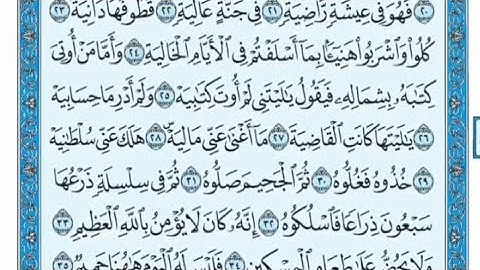 ٢٠ فَهُوَ فِي عِيشَةٍ رَّاضِيَةٍ ٢١ فِي جَنَّةٍ عَالِيَةٍ ٢٢ قُطُوفُهَا دَانِيَةٌ ٢٣
كُلُوا۟ وَٱشْرَبُوا۟ هَنِيٓـًٔا بِمَآ أَسْلَفْتُمْ فِي ٱلْأَيَّامِ ٱلْخَالِيَةِ ٢٤ وَأَمَّا مَنْ أُوتِيَ
كِتَٰبَهُۥ بِشِمَالِهِۦ فَيَقُولُ يَٰلَيْتَنِي لَمْ أُوتَ كِتَٰبِيَهْ ٢٥ وَلَمْ أَدْرِ مَا حِسَابِيَهْ
٢٦ يَٰلَيْتَهَا كَانَتِ ٱلْقَاضِيَةَ ٢٧ مَآ أَغْنَىٰ عَنِّي مَالِيَهْ ۜ ٢٨ هَلَكَ عَنِّي سُلْطَٰنِيَهْ
٢٩ خُذُوهُ فَغُلُّوهُ ٣٠ ثُمَّ ٱلْجَحِيمَ صَلُّوهُ ٣١ ثُمَّ فِي سِلْسِلَةٍ ذَرْعُهَا
سَبْعُونَ ذِرَاعًا فَٱسْلُكُوهُ ٣٢ إِنَّهُۥ كَانَ لَا يُؤْمِنُ بِٱللَّهِ ٱلْعَظِيمِ ٣٣
وَلَا يَحُضُّ عَلَىٰ طَعَامِ ٱلْمِسْكِينِ ٣٤ فَلَيْسَ لَهُ ٱلْيَوْمَ هَٰهُنَا حَمِيمٌ ٣٥